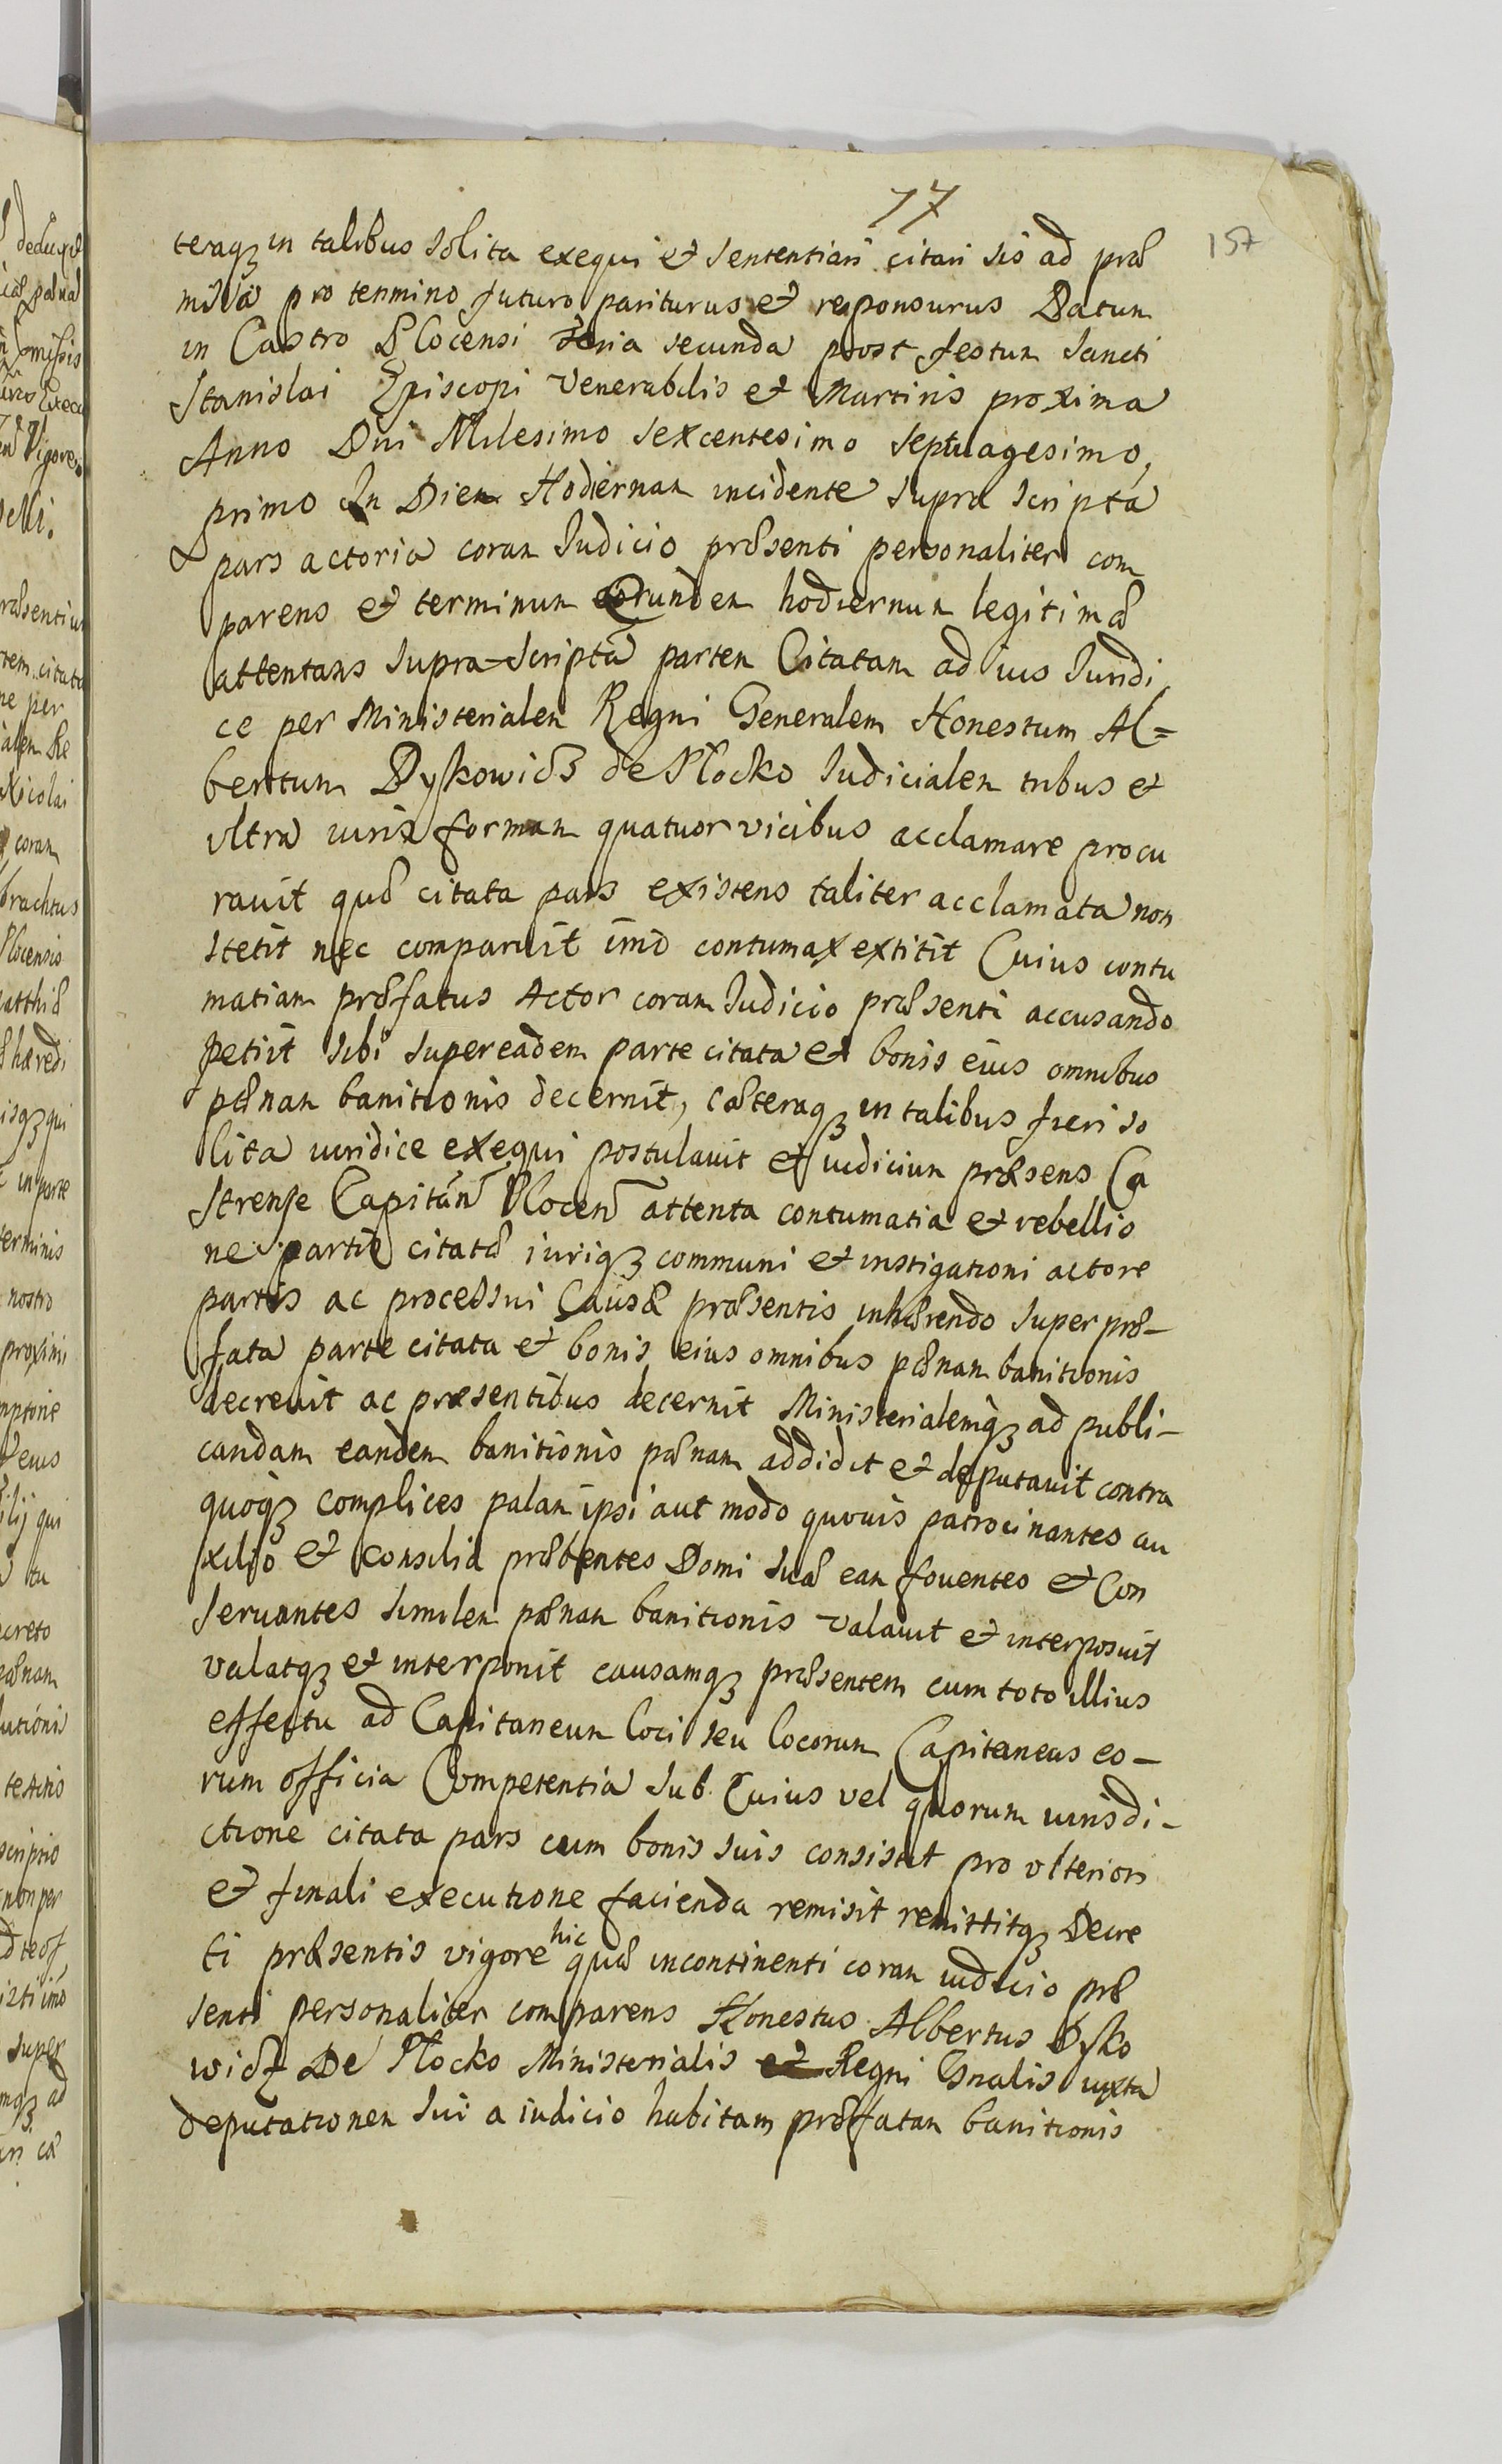 17
157
teraqȝ in talibus solita exequi et sententiari citari sis ad præ
missa pro termino futuro pariturus et responsurus Datum
in Castro Plocensi feria secunda post festum Sancti
Stanislai Episcopi Venerabilis et Martiris proxima
Anno Dni Milesimo sexcentesimo septuagesimo,
primo In Diem Hodiernam incidente supra scripta
pars actoria coram Iudicio præsenti personaliter com
parens et terminum eorundem hodiernum legitimæ
attentans supra-scriptã partem Citatam ad ius Iuridi
ce per Ministerialem Regni Generalem Honestum Al=
bertum Dyskowicz de Płocko Iudicialem tribus et
vltra iuris formam quatuor vicibus acclamare procu
rauit quæ citata pars existens taliter acclamata non
stetit nec comparuit imo contumax extitit Cuius contu
matiam præfatus Actor coram Iudicio præsenti accusando
petiit sibi super eadem parte citata et bonis eius omnibus
pænam banitionis decernit, cæteraqȝ in talibus fieri so
lita iuridice exequi postulauit et iudicium præsens Ca
strense Capitãn Plocen attenta contumatia et rebellio
ne partis citatæ iuriqȝ communi et instigationi actore
partis ac processui Causæ præsentis inhærendo super præ-
fata parte citata et bonis eius omnibus pænam banitionis
decreuit ac præsentibus decernit Ministerialemqȝ ad publi-
candam eandem banitionis pænam addidit et deputauit contra
quoqȝ complices palam ipsi aut modo quouis patrocinantes au
xilio et consilia præbentes Domi suæ eam fouentes et Con
seruantes similem pænam banitionis valauit et interposuit
valatqȝ et interponit causamqȝ præsentem cum toto illius
effectu ad Capitaneum loci seu locorum Capitaneus eo-
rum officia Competentia sub Cuius vel quorum iurisdi-
ctione citata pars cum bonis suis consistit pro vlteriori
et finali executione facienda remisit remittitqȝ Decre
ti præsentis vigore hic quæ incontinenti coram iudicio præ
senti personaliter comparens Honestus Albertus Dysko
wicz De Płocko Ministerialis Regni Gnalis iuxta
deputationem sui a iudicio habitam præfatam banitionis